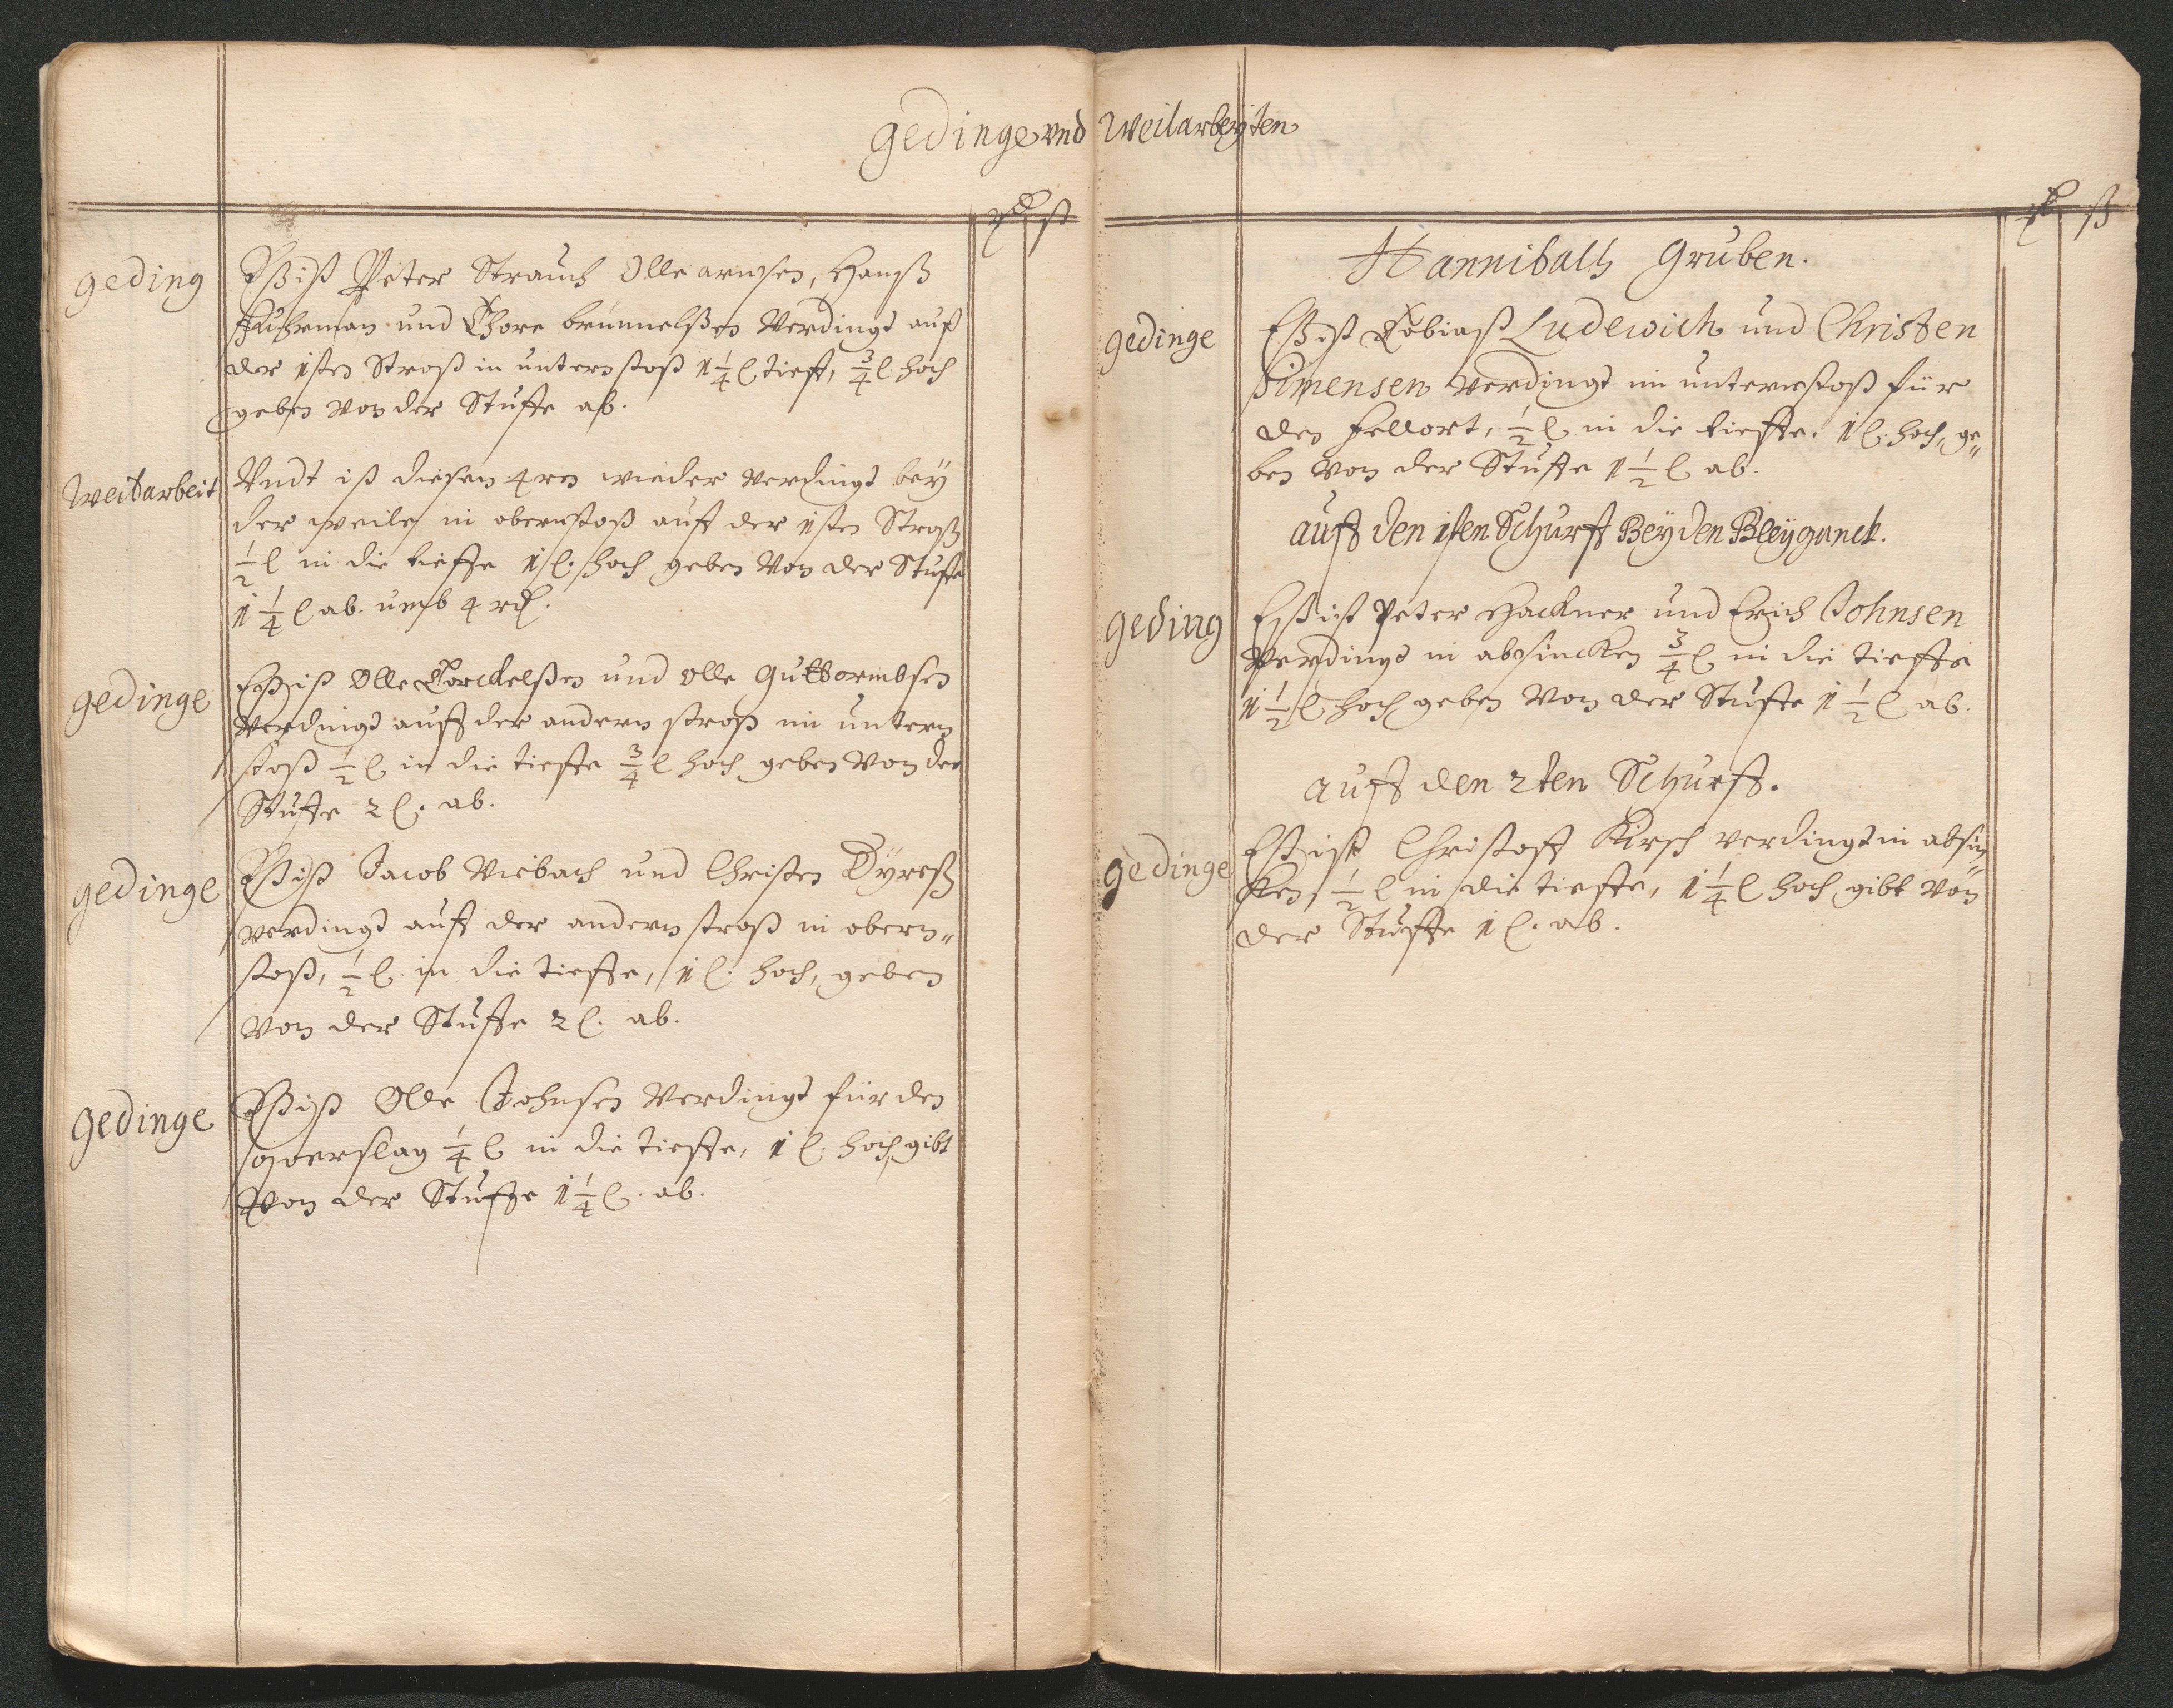 gedinge vnd Weilarbeyten
rd ß
geding
Eß ist Peter Strauch Olle arnsen, Hanß
Fuhrman und Thore brünnelßen Verdingt auf
der 1sten Stroß in untern stoß 1 1/4 l tieff, 3/4 l. hoch
geben Von der Stuffe ab.
Weilarbeit
Undt ist diesen 4ren wieder Verdingt bey
der weile in obernstoß auff der 1sten Stroß
1/2 l in die tieffe 1 l. hoch geben Von der Stuffe
1 1/4 l ab. umb 4 rd.
gedinge
Eß ist Olle Torckelßen und Olle Guttormbsen
Verdingt auff der andern stroß in untern
stoß 1/2 l in die tieffe 3/4 l hoch geben Von der
Stuffe 2 l. ab.
gedinge
Eß ist Jacob Viebach und Christen Dÿreß
verdingt auff der andern stroß in obern„
stoß, 1/2 l. in die tieffe, 1 l. hoch, geben
Von der Stuffe 2 l. ab.
gedinge
Eß ist Olle Johnsen Verdingt für den
ofverslag 1/4 l in die tieffe, 1 l. hoch gibt
Von der Stuffe 1 1/4 l. ab.
rd ß
Hanniballs Gruben.
gedinge
Eß ist Tobiaß Ludewich und Christen
Simensen verdingt im unternstoß für
den fellort, 1/2 l in die tieffe. 1 l. hoch, ge„
ben Von der Stuffe 1 1/2 l ab.
auff den 1sten Schurff Beÿ den Bleÿganck.
geding
Eß ist Peter Hackner und Erich Johnsen
Verdingt in absincken 3/4 l in die tieffe
1 1/2 l hoch geben Von der Stuffe 1 1/2 l ab.
auff den 2ten Schurff.
gedinge
Eß ist Christoff Kirsch verdingt in absin„
ken, 1/2 l in die tieffe, 1 1/4 l hoch gibt Von
der Stuffe 1 l. ab.